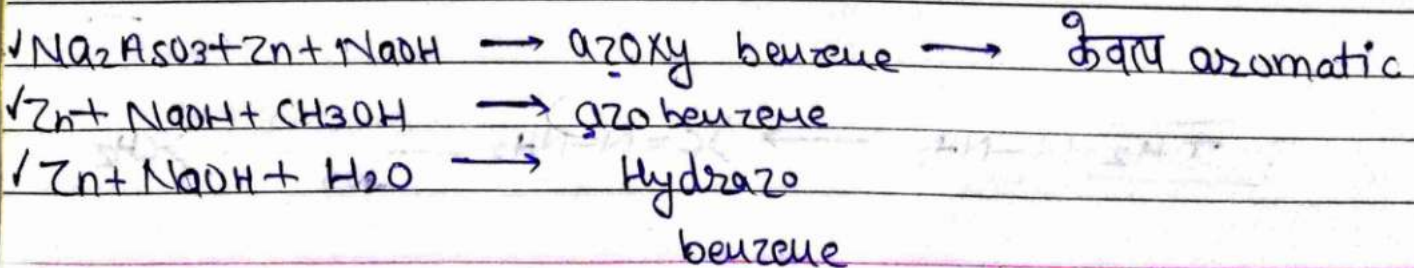 ✓Na2AsO3+Zn+NaOH → azoxy benzene → केवल aromatic
✓Zn+ NaOH+ CH3OH → azo benzene
✓Zn+ NaOH+ H2O → Hydrazo
benzene